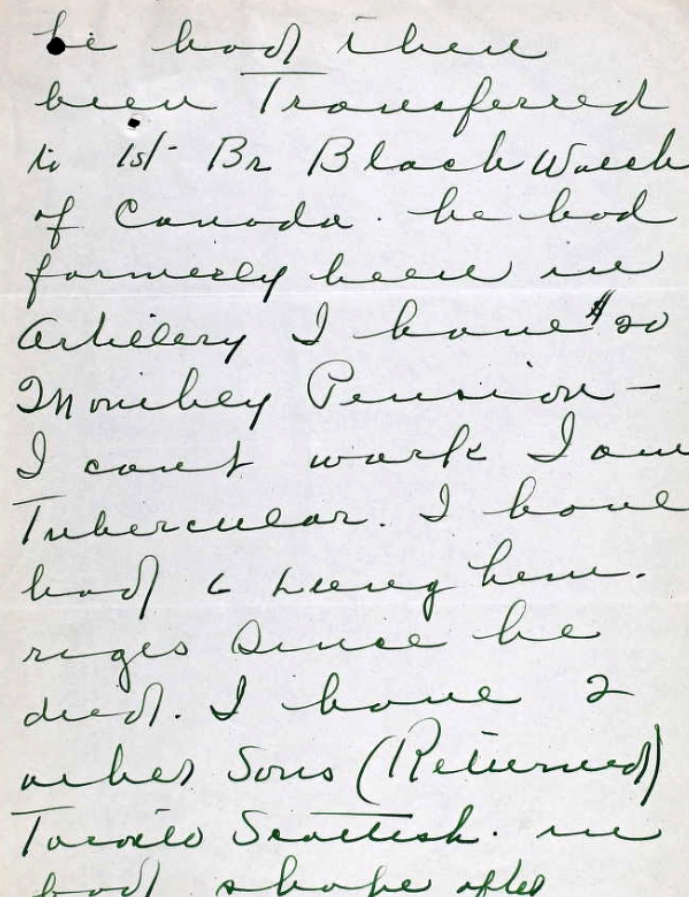 he had then
been Transferred
to 1st Bn Black Watch
of Canada. he had
formerly been in
Artillery I have $20
Monthly Pension -
I cant work I am
Tubercular. I have
had 6 Lung hem-
rages since he
died. I have 2
other Sons (Returned)
Toronto Scottish. in
bad shape after